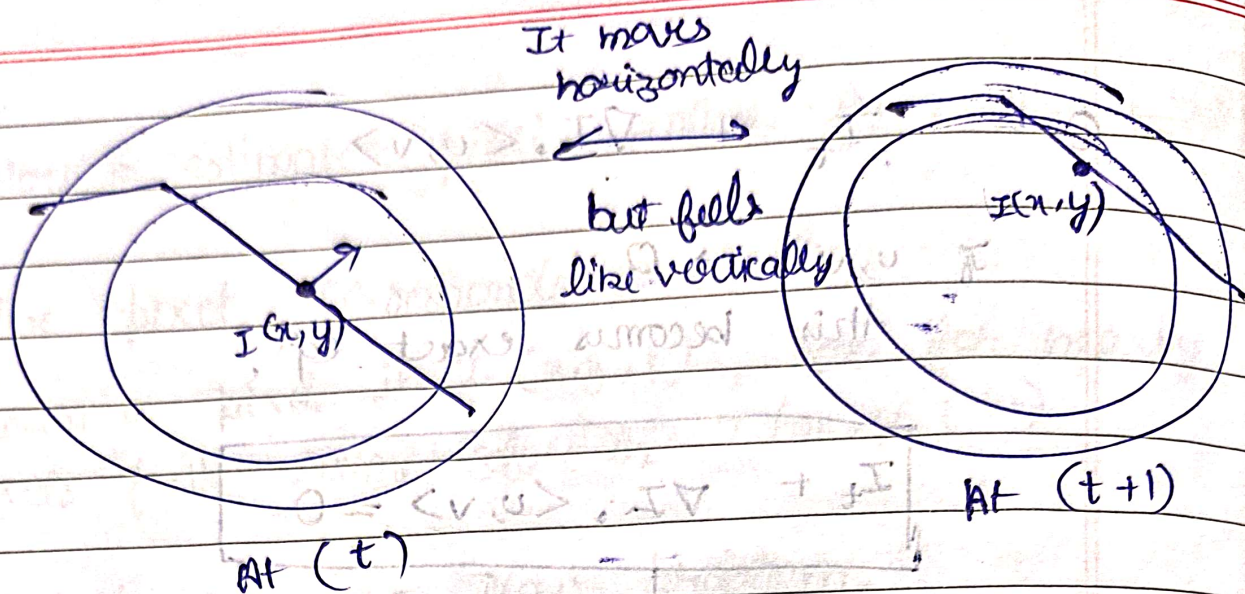 It moves
horizontally
but feels
like vertically
I(x,y)
I(x,y)
At (t)
At (t+1)